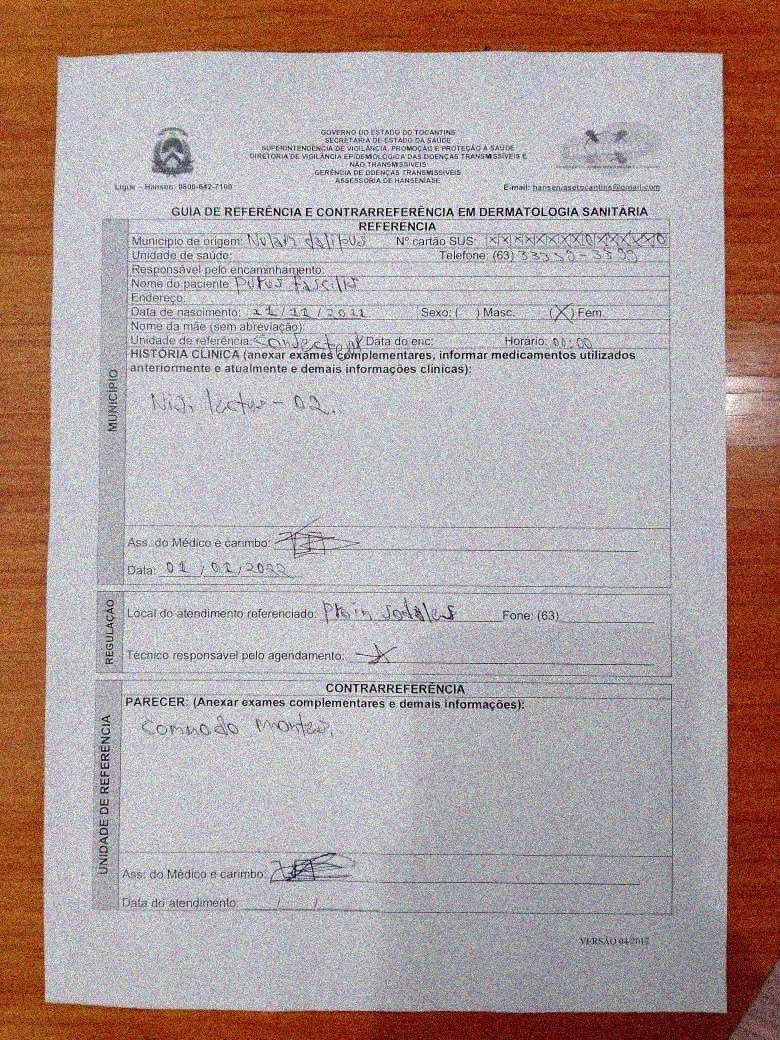 GOVERNO DO ESTADO DO TOCANTINS
SECRETARIA DE ESTADO DA SAÚDE
SUPERINTENDÊNCIA DE VIGILÂNCIA, PROMOÇÃO E PROTEÇÃO À SAÚDE
DIRETORIA DE VIGILÂNCIA EPIDEMIOLÓGICA DAS DOENÇAS TRANSMISSÍVEIS E
NÃO TRANSMISSÍVEIS
GERÊNCIA DE DOENÇAS TRANSMISSÍVEIS
ASSESSORIA DE HANSENÍASE
Ligue – Hansen: 0800-642-7100 E-mail: hanseniasetocantins@gmail.com
GUIA DE REFERÊNCIA E CONTRARREFERÊNCIA EM DERMATOLOGIA SANITÁRIA
REFERENCIA
MUNICÍPIO
Município de origem: Nº cartão SUS:
Unidade de saúde: Telefone: (63)
Responsável pelo encaminhamento:
Nome do paciente
Endereço:
Data de nascimento: Sexo: ( ) Masc. (X) Fem.
Nome da mãe (sem abreviação):
Unidade de referência: Data do enc: Horário: 00:00
HISTÓRIA CLINICA (anexar exames complementares, informar medicamentos utilizados
anteriormente e atualmente e demais informações clínicas):
lectus - 02.
Ass. do Médico e carimbo:
Data: 01/01/2022
REGULAÇÃO
Local do atendimento referenciado: Proin sodales Fone: (63)
Técnico responsável pelo agendamento:
UNIDADE DE REFERÊNCIA
CONTRARREFERÊNCIA
PARECER: (Anexar exames complementares e demais informações):
Ass: do Médico e carimbo:
Data do atendimento: / /
VERSÃO 04/2017